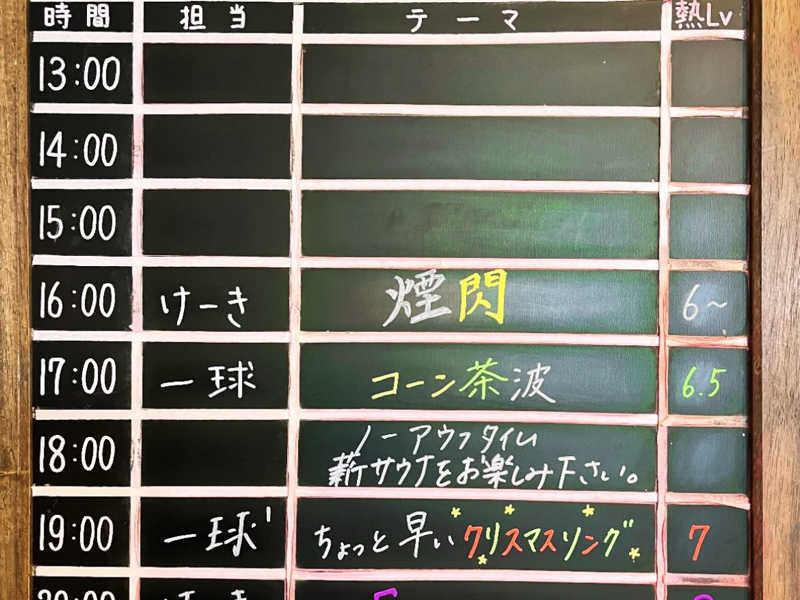 時間 担当 テーマ 熱Lv
13:00
14:00
15:00
16:00 けーき 煙閃 6~
17:00 一球 コーン茶波 6.5
18:00 ノーアウフタイム
薪サウナをお楽しみ下さい。
19:00 一球' ちょっと早いクリスマスソング 7
20:00 けーき